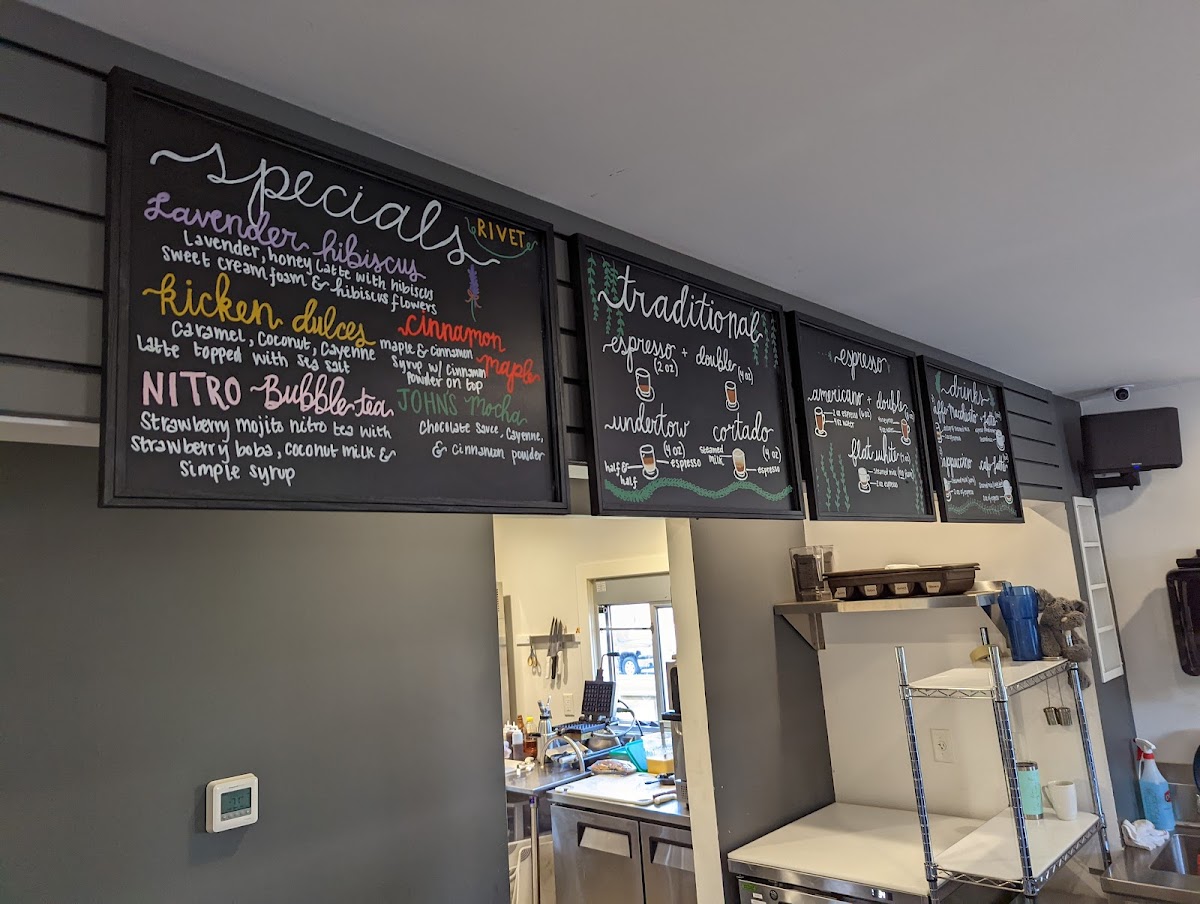 specials
RIVET
Lavender hibiscus
Lavender, honey latte with hibiscus
sweet cream foam & hibiscus flowers
kicken dulces
Caramel, Coconut, Cayenne
latte topped with sea salt
cinnamon
maple
maple & cinnamon
syrup w/ cinnamon
powder on top
NITRO Bubble tea
Strawberry mojito nitro tea with
strawberry boba, coconut milk &
simple syrup
JOHNS Mocha
Chocolate sauce, Cayenne,
& cinnamon powder
traditional
espresso + double
(2 oz)
(4 oz)
undertow
(4 oz)
half &
half
espresso
cortado
(4 oz)
steamed
milk
espresso
espresso
americano + double
2 oz espresso
hot water
flat white
steamed milk
2 oz espresso
drinks